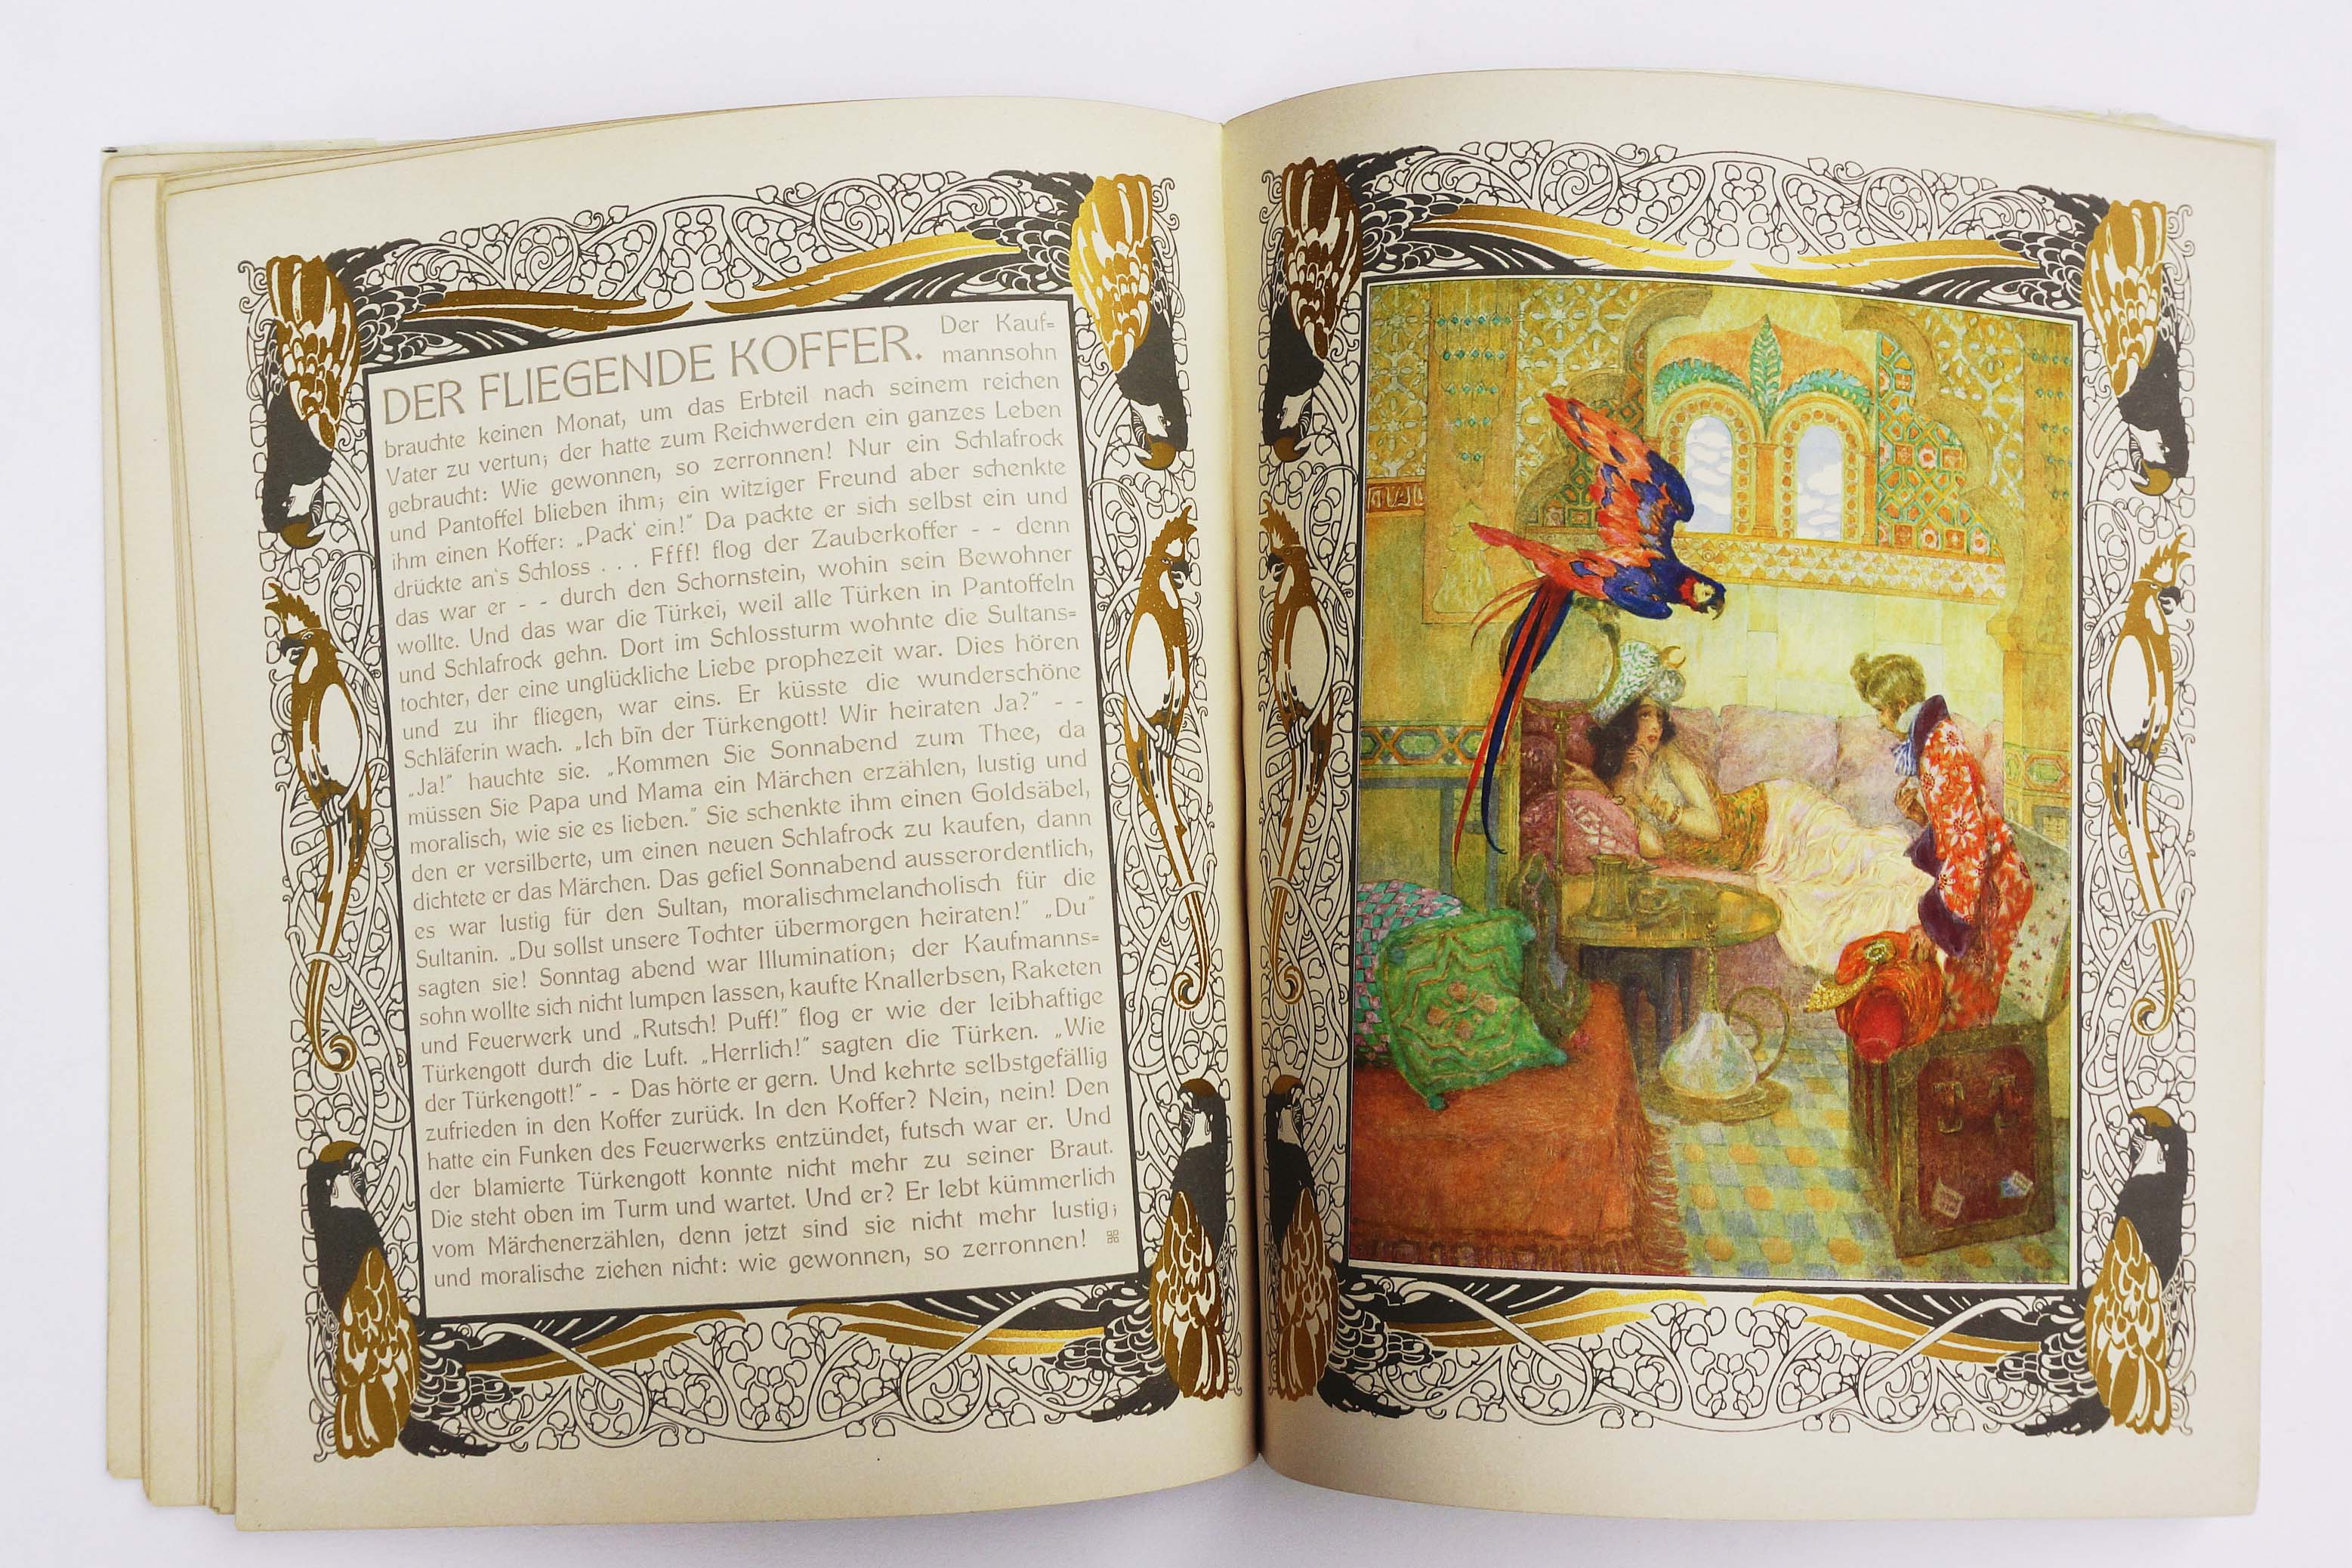 DER FLIEGENDE KOFFER. Der Kauf=
mannsohn
brauchte keinen Monat, um das Erbteil nach seinem reichen
Vater zu vertun; der hatte zum Reichwerden ein ganzes Leben
gebraucht: Wie gewonnen, so zerronnen! Nur ein Schlafrock
und Pantoffel blieben ihm; ein witziger Freund aber schenkte
ihm einen Koffer: „Pack' ein!" Da packte er sich selbst ein und
drückte an's Schloss . . . Ffff! flog der Zauberkoffer - - denn
das war er - - durch den Schornstein, wohin sein Bewohner
wollte. Und das war die Türkei, weil alle Türken in Pantoffeln
und Schlafrock gehn. Dort im Schlossturm wohnte die Sultans=
tochter, der eine unglückliche Liebe prophezeit war. Dies hören
und zu ihr fliegen, war eins. Er küsste die wunderschöne
Schläferin wach. „Ich bin der Türkengott! Wir heiraten Ja?" - -
„Ja!" hauchte sie. „Kommen Sie Sonnabend zum Thee, da
müssen Sie Papa und Mama ein Märchen erzählen, lustig und
moralisch, wie sie es lieben." Sie schenkte ihm einen Goldsäbel,
den er versilberte, um einen neuen Schlafrock zu kaufen, dann
dichtete er das Märchen. Das gefiel Sonnabend ausserordentlich,
es war lustig für den Sultan, moralischmelancholisch für die
Sultanin. „Du sollst unsere Tochter übermorgen heiraten!" „Du"
sagten sie! Sonntag abend war Illumination; der Kaufmanns=
sohn wollte sich nicht lumpen lassen, kaufte Knallerbsen, Raketen
und Feuerwerk und „Rutsch! Puff!" flog er wie der leibhaftige
Türkengott durch die Luft. „Herrlich!" sagten die Türken. „Wie
der Türkengott!" - - Das hörte er gern. Und kehrte selbstgefällig
zufrieden in den Koffer zurück. In den Koffer? Nein, nein! Den
hatte ein Funken des Feuerwerks entzündet, futsch war er. Und
der blamierte Türkengott konnte nicht mehr zu seiner Braut.
Die steht oben im Turm und wartet. Und er? Er lebt kümmerlich
vom Märchenerzählen, denn jetzt sind sie nicht mehr lustig;
und moralische ziehen nicht: wie gewonnen, so zerronnen!